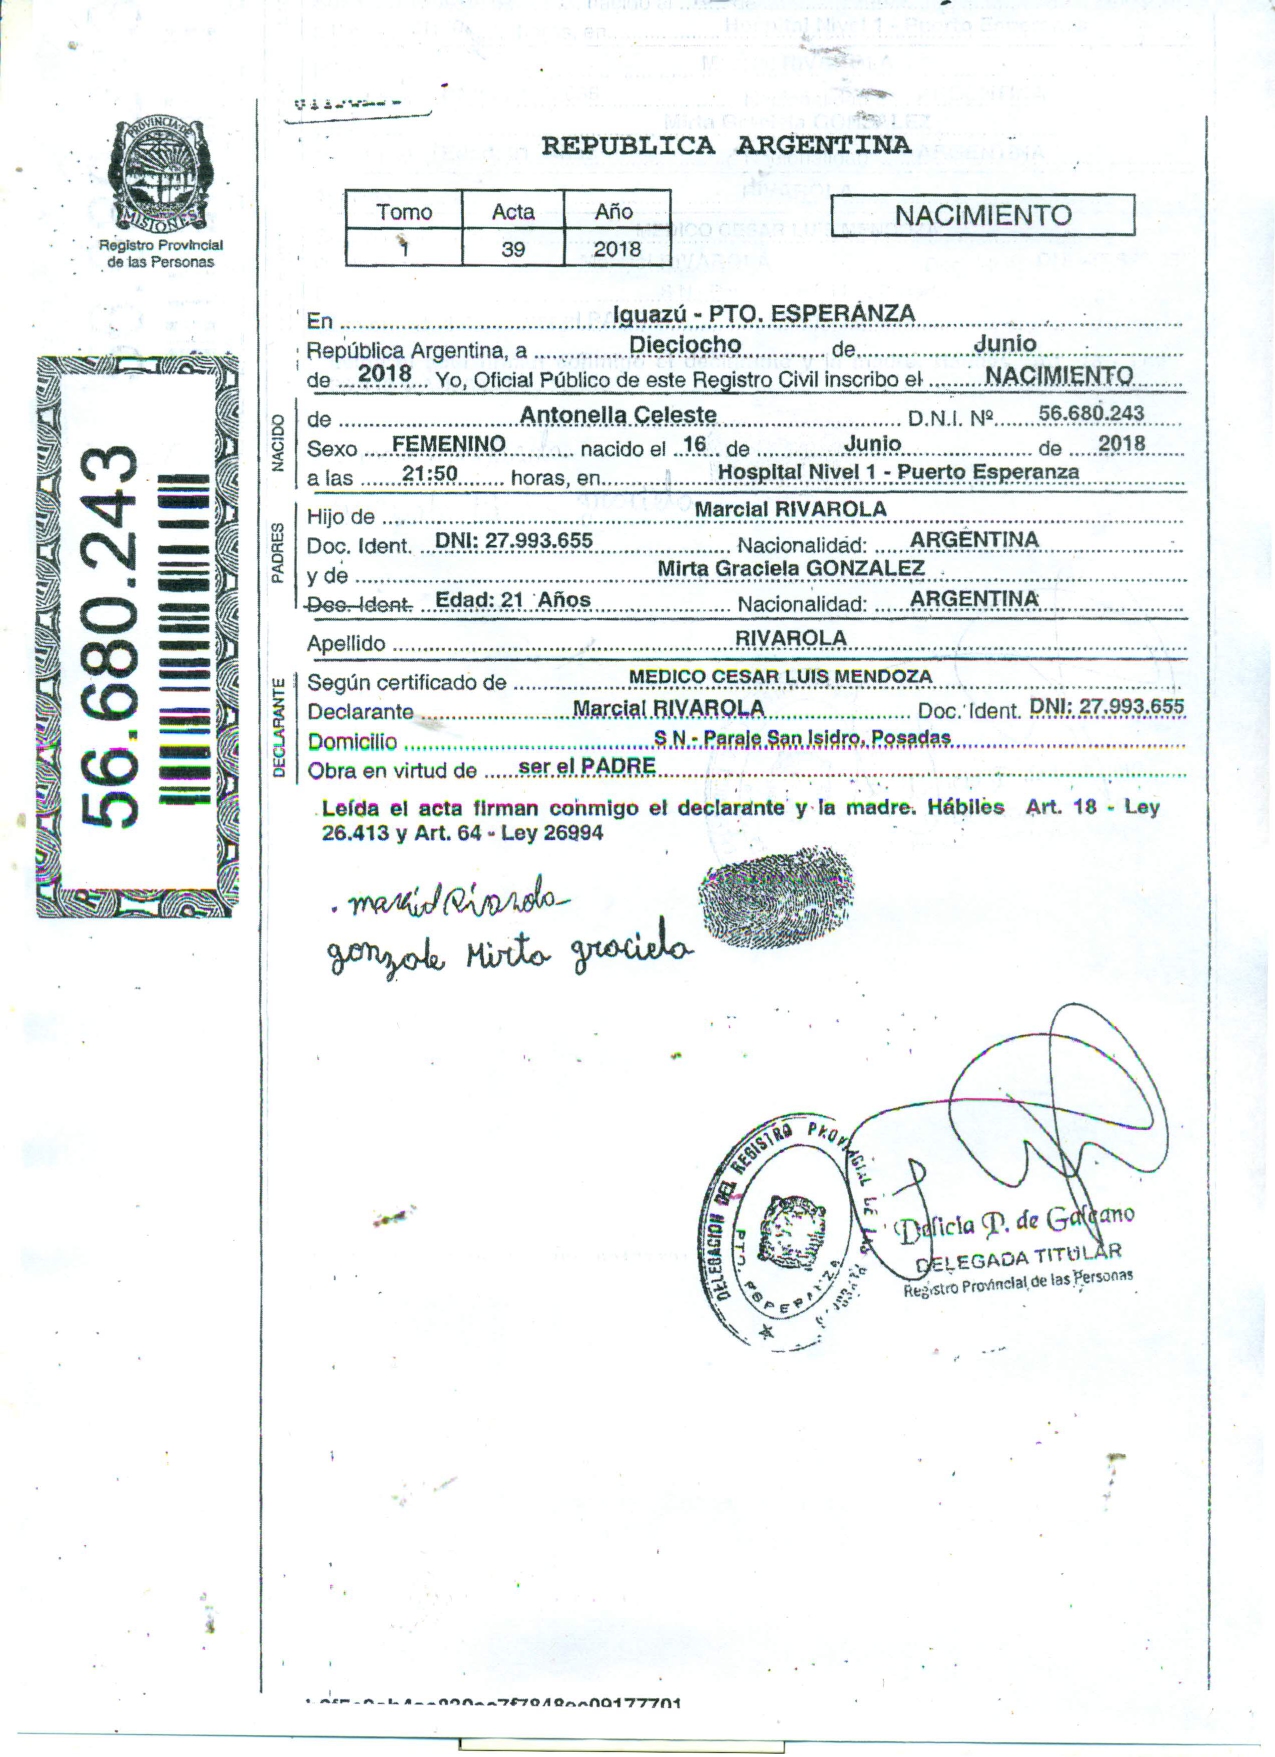 REPUBLICA ARGENTINA
PROVINCIA DE MISIONES
Registro Provincial
de las Personas
Tomo Acta Año
1 39 2018
NACIMIENTO
En Iguazú - PTO. ESPERANZA
República Argentina, a Dieciocho de Junio
de 2018 Yo, Oficial Público de este Registro Civil inscribo el NACIMIENTO
NACIDO
de Antonella Celeste D.N.I. Nº 56.680.243
Sexo FEMENINO nacido el 16 de Junio de 2018
a las 21:50 horas, en Hospital Nivel 1 - Puerto Esperanza
PADRES
Hijo de Marcial RIVAROLA
Doc. Ident. DNI: 27.993.655 Nacionalidad: ARGENTINA
y de Mirta Graciela GONZALEZ
Doc. Ident. Edad: 21 Años Nacionalidad: ARGENTINA
Apellido RIVAROLA
DECLARANTE
Según certificado de MEDICO CESAR LUIS MENDOZA
Declarante Marcial RIVAROLA Doc. Ident. DNI: 27.993.655
Domicilio S N - Paraje San Isidro, Posadas
Obra en virtud de ser el PADRE
Leída el acta firman conmigo el declarante y la madre. Hábiles Art. 18 - Ley
26.413 y Art. 64 - Ley 26994
56.680.243
gonzale Mirta graciela
DELEGACION DEL REGISTRO PROVINCIAL DE LAS
PTO. ESPERANZA
Delicia P. de Galeano
DELEGADA TITULAR
Registro Provincial de las Personas